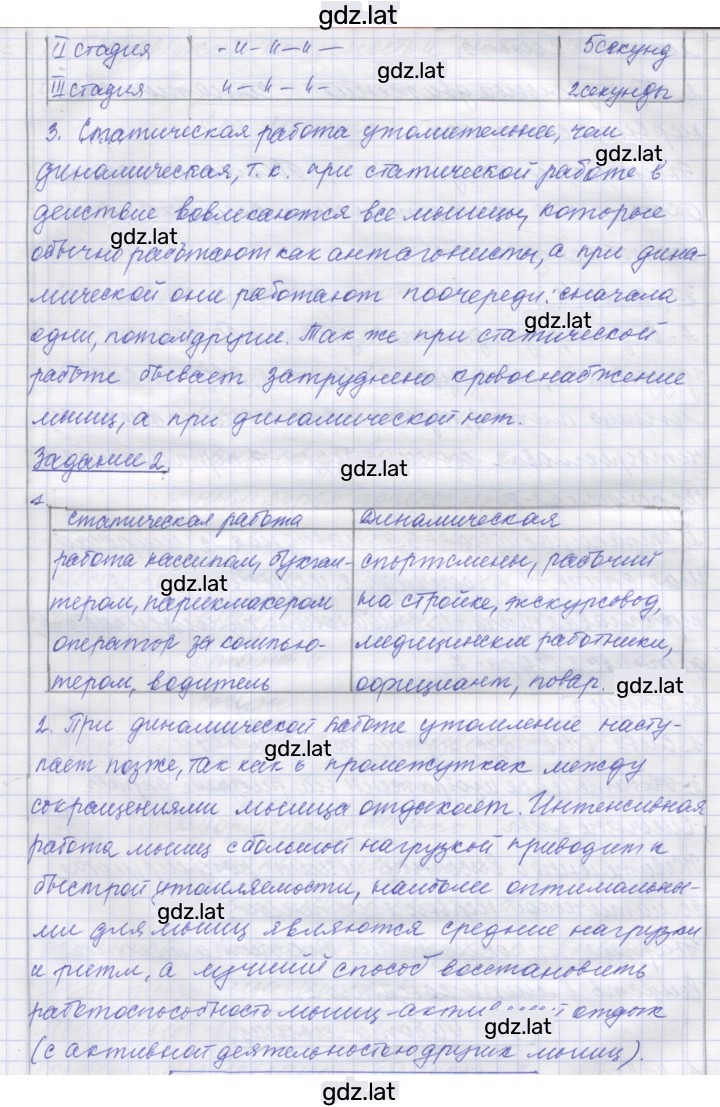 gdz.lat
II стадия -"-"-"- 5 секунд
gdz.lat
III стадия "-"-"- 2 секунды
3. Статическая работа утомительнее, чем
gdz.lat
динамическая, т.к. при статической работе в
действие вовлекаются все мышцы, которые
gdz.lat
обычно работают как антагонисты, а при дина-
мической они работают поочереди: сначала
gdz.lat
одни, потом другие. Так же при статической
работе бывает затруднено кровоснабжение
мышц, а при динамической нет.
Задание 2.
gdz.lat
1.
статическая работа Динамическая
работа кассиром, бухгал- спортсмены, рабочий
gdz.lat
тером, парикмахером на стройке, экскурсовод,
оператор за компью- медицинские работники,
тером, водитель официант, повар.
gdz.lat
2. При динамической работе утомление насту-
gdz.lat
пает позже, так как в промежутках между
сокращениями мышца отдыхает. Интенсивная
работа мышц с большой нагрузкой приводит к
быстрой утомляемости, наиболее оптимальны-
gdz.lat
ми для мышц являются средние нагрузки
и ритм, а лучший способ восстановить
работоспособность мышц-активный отдых
gdz.lat
(с активной деятельностью других мышц).
gdz.lat